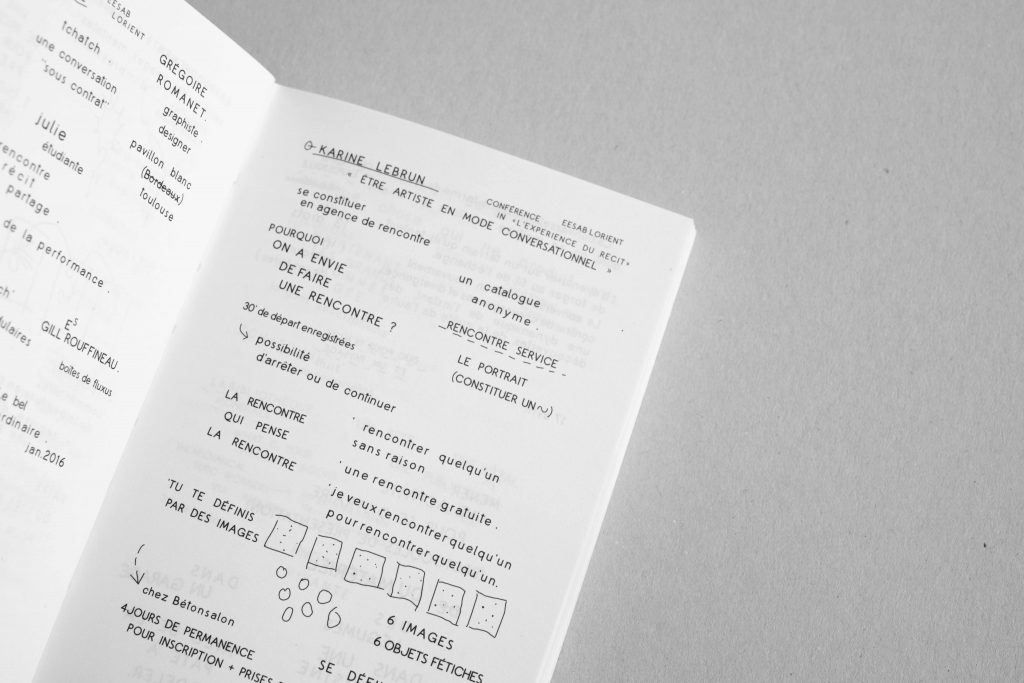 EESAB
LORIENT
tchatch .
une conversation
"sous contrat"
GRÉGOIRE
ROMANET.
graphiste .
designer
julie
étudiante
pavillon blanc
(Bordeaux)
toulouse
rencontre
récit
partage .
de la performance .
ES
GILL ROUFFINEAU.
boîtes de fluxus
bel
jan.2016
KARINE LEBRUN
« ÊTRE ARTISTE EN MODE CONVERSATIONNEL »
CONFÉRENCE EESAB LORIENT
IN "L'EXPERIENCE DU RECIT"
se constituer
en agence de rencontre
POURQUOI
ON A ENVIE
DE FAIRE
UNE RENCONTRE ?
un catalogue
anonyme .
30' de départ enregistrées
possibilité
d'arrêter ou de continuer
RENCONTRE SERVICE
LE PORTRAIT
(CONSTITUER UN ~)
LA RENCONTRE
QUI PENSE
LA RENCONTRE
' rencontrer quelqu'un
sans raison
' une rencontre gratuite .
' je veux rencontrer quelqu'un
pour rencontrer quelqu'un.
'TU TE DÉFINIS
PAR DES IMAGES
6 IMAGES
6 OBJETS FÉTICHES
chez Bétonsalon
4 JOURS DE PERMANENCE
POUR INSCRIPTION + PRISES
SE